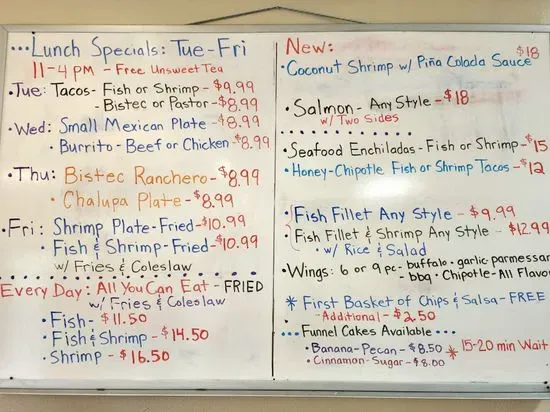 ...Lunch Specials: Tue-Fri
11-4 pm - Free Unsweet Tea
•Tue: Tacos- Fish or Shrimp - $9.99
- Bistec or Pastor - $8.99
•Wed: Small Mexican Plate - $8.99
• Burrito - Beef or Chicken - $8.99
•Thu: Bistec Ranchero - $8.99
• Chalupa Plate - $8.99
•Fri: Shrimp Plate-Fried - $10.99
• Fish & Shrimp-Fried - $10.99
w/ Fries & Coleslaw
Every Day: All You Can Eat - FRIED
w/ Fries & Coleslaw
• Fish - $11.50
• Fish & Shrimp - $14.50
• Shrimp - $16.50
New:
•Coconut Shrimp w/ Piña Colada Sauce $18
•Salmon - Any Style - $18
w/ Two Sides
•Seafood Enchiladas - Fish or Shrimp - $15
•Honey-Chipotle Fish or Shrimp Tacos - $12
•Fish Fillet Any Style - $9.99
•Fish Fillet & Shrimp Any Style - $12.99
• w/ Rice & Salad
•Wings: 6 or 9 pc - buffalo - garlic-parmessan
- bbq - Chipotle - All Flavo
* First Basket of Chips & Salsa - FREE
- Additional - $2.50
... Funnel Cakes Available ...
• Banana-Pecan - $8.50 * 15-20 min Wait
• Cinnamon-Sugar - $8.00